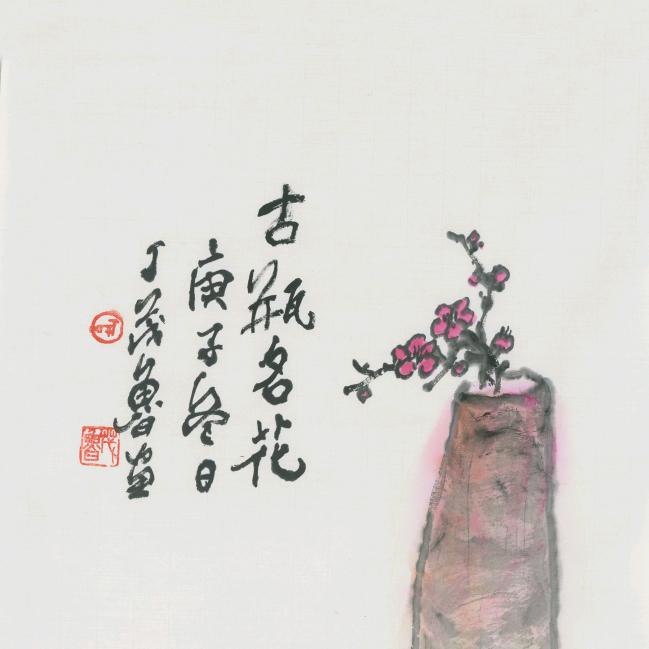 古瓶名花
庚子冬日
丁茂鲁画
茂魯